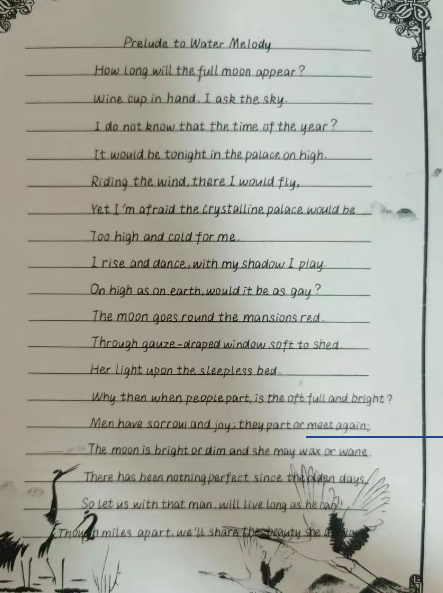 Prelude to Water Melody
How long will the full moon appear?
Wine cup in hand. I ask the sky.
I do not know that the time of the year?
It would be tonight in the palace on high.
Riding the wind, there I would fly,
Yet I'm afraid the crystalline palace would be
Too high and cold for me.
I rise and dance, with my shadow I play.
On high as on earth, would it be as gay?
The moon goes round the mansions red.
Through gauze-draped window soft to shed.
Her light upon the sleepless bed.
Why then when people part, is the oft full and bright?
Men have sorrow and joy; they part or meet again;
The moon is bright or dim and she may wax or wane.
There has been nothing perfect since the olden days,
So let us with that man. will live long as he can!
miles apart, we'll share the beauty she